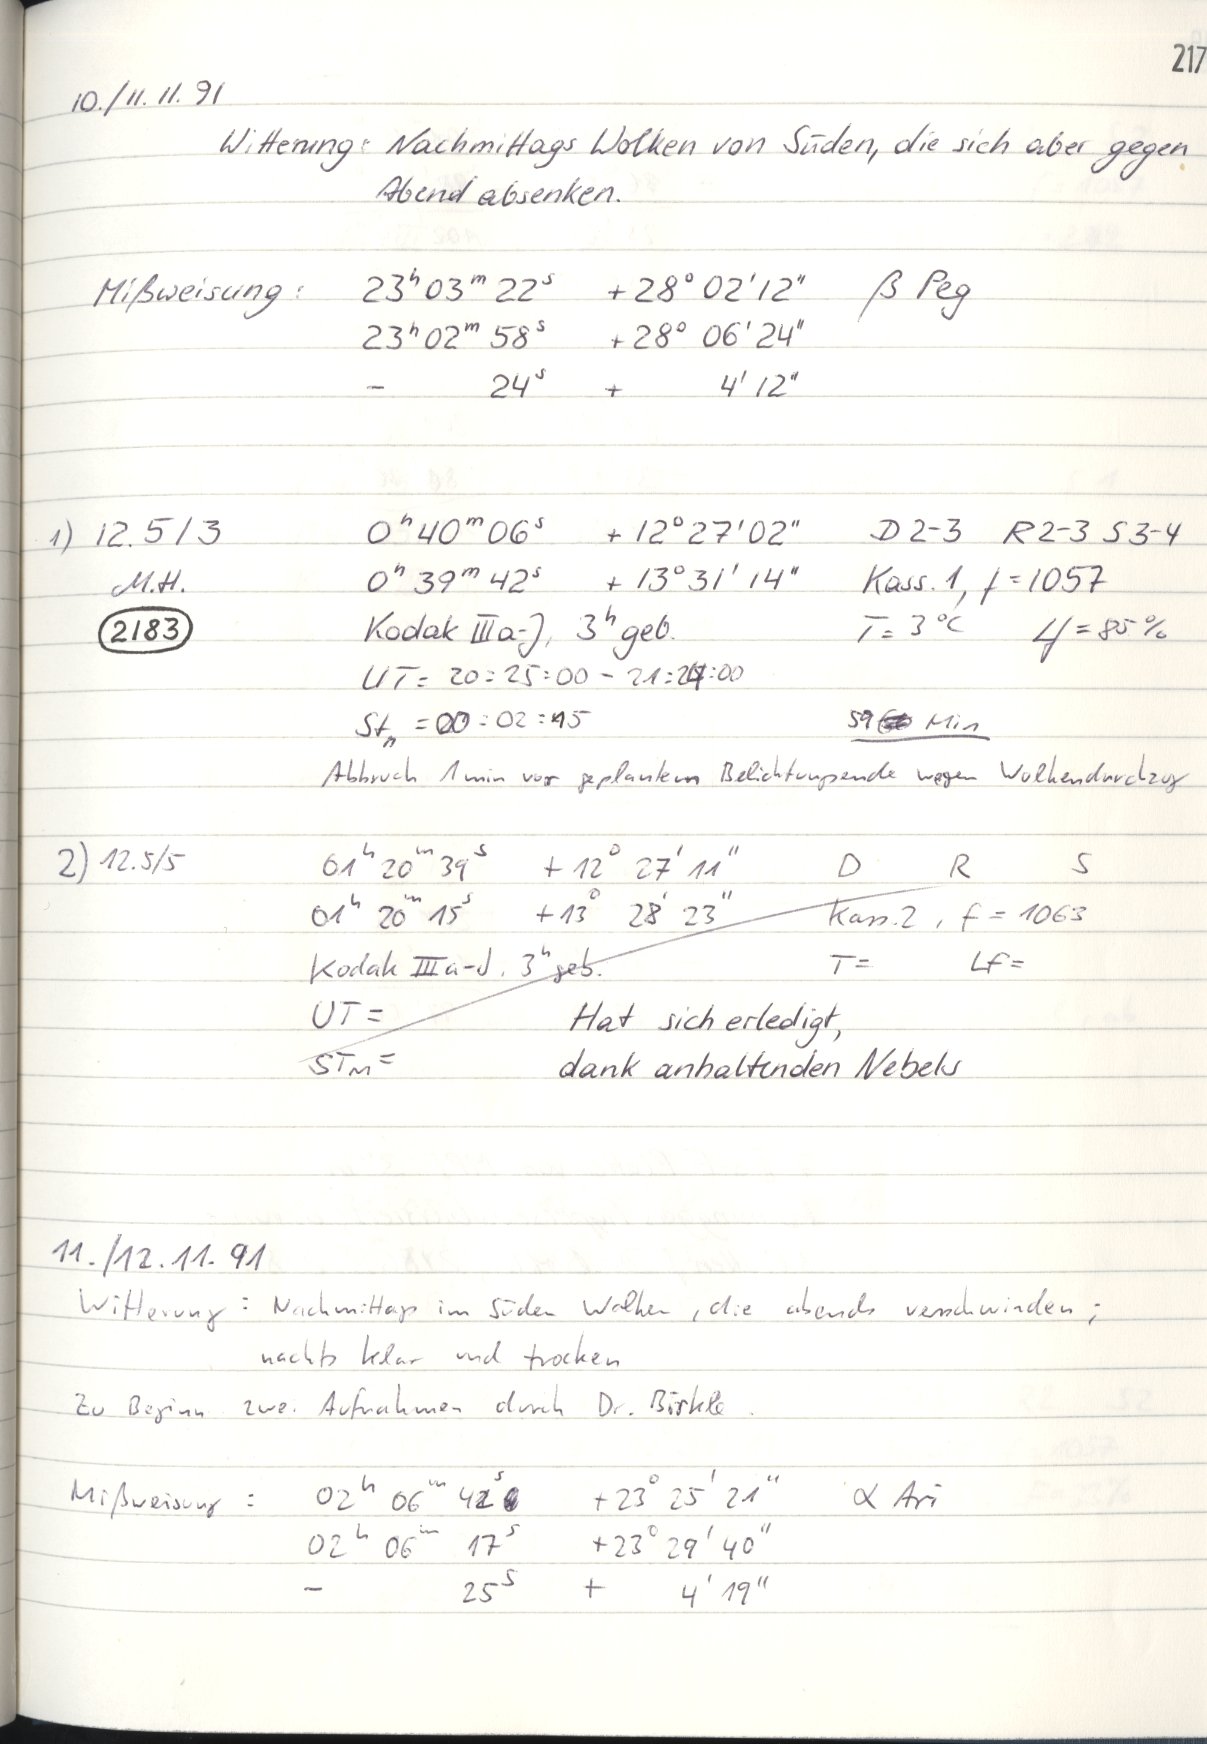 217
10./11.11.91
Witterung: Nachmittags Wolken von Süden, die sich aber gegen
Abend absenken.
Mißweisung: 23h 03m 22s +28° 02' 12" β Peg
23h 02m 58s +28° 06' 24"
- 24s + 4' 12"
1) 12.5/3 0h 40m 06s +12° 27' 02" D 2-3 R 2-3 S 3-4
M.H. 0h 39m 42s +13° 31' 14" Kass. 1, f = 1057
2183 Kodak IIIa-J, 3h geb. T = 3°C Lf = 85%
UT = 20:25:00 - 21:24:00
Stn = 00:02:45 59 Min
Abbruch 1 min vor geplantem Belichtungsende wegen Wolkendurchzug
2) 12.5/5 01h 20m 39s +12° 27' 11" D R S
01h 20m 15s +13° 28' 23" Kass. 2, f = 1063
Kodak IIIa-J, 3h geb. T = Lf =
UT = Hat sich erledigt,
STM = dank anhaltenden Nebels
11./12.11.91
Witterung: Nachmittags im Süden Wolken, die abends verschwinden;
nachts klar und trocken
Zu Beginn zwei Aufnahmen durch Dr. Birkle.
Mißweisung: 02h 06m 42s +23° 25' 21" α Ari
02h 06m 17s +23° 29' 40"
- 25s + 4' 19"